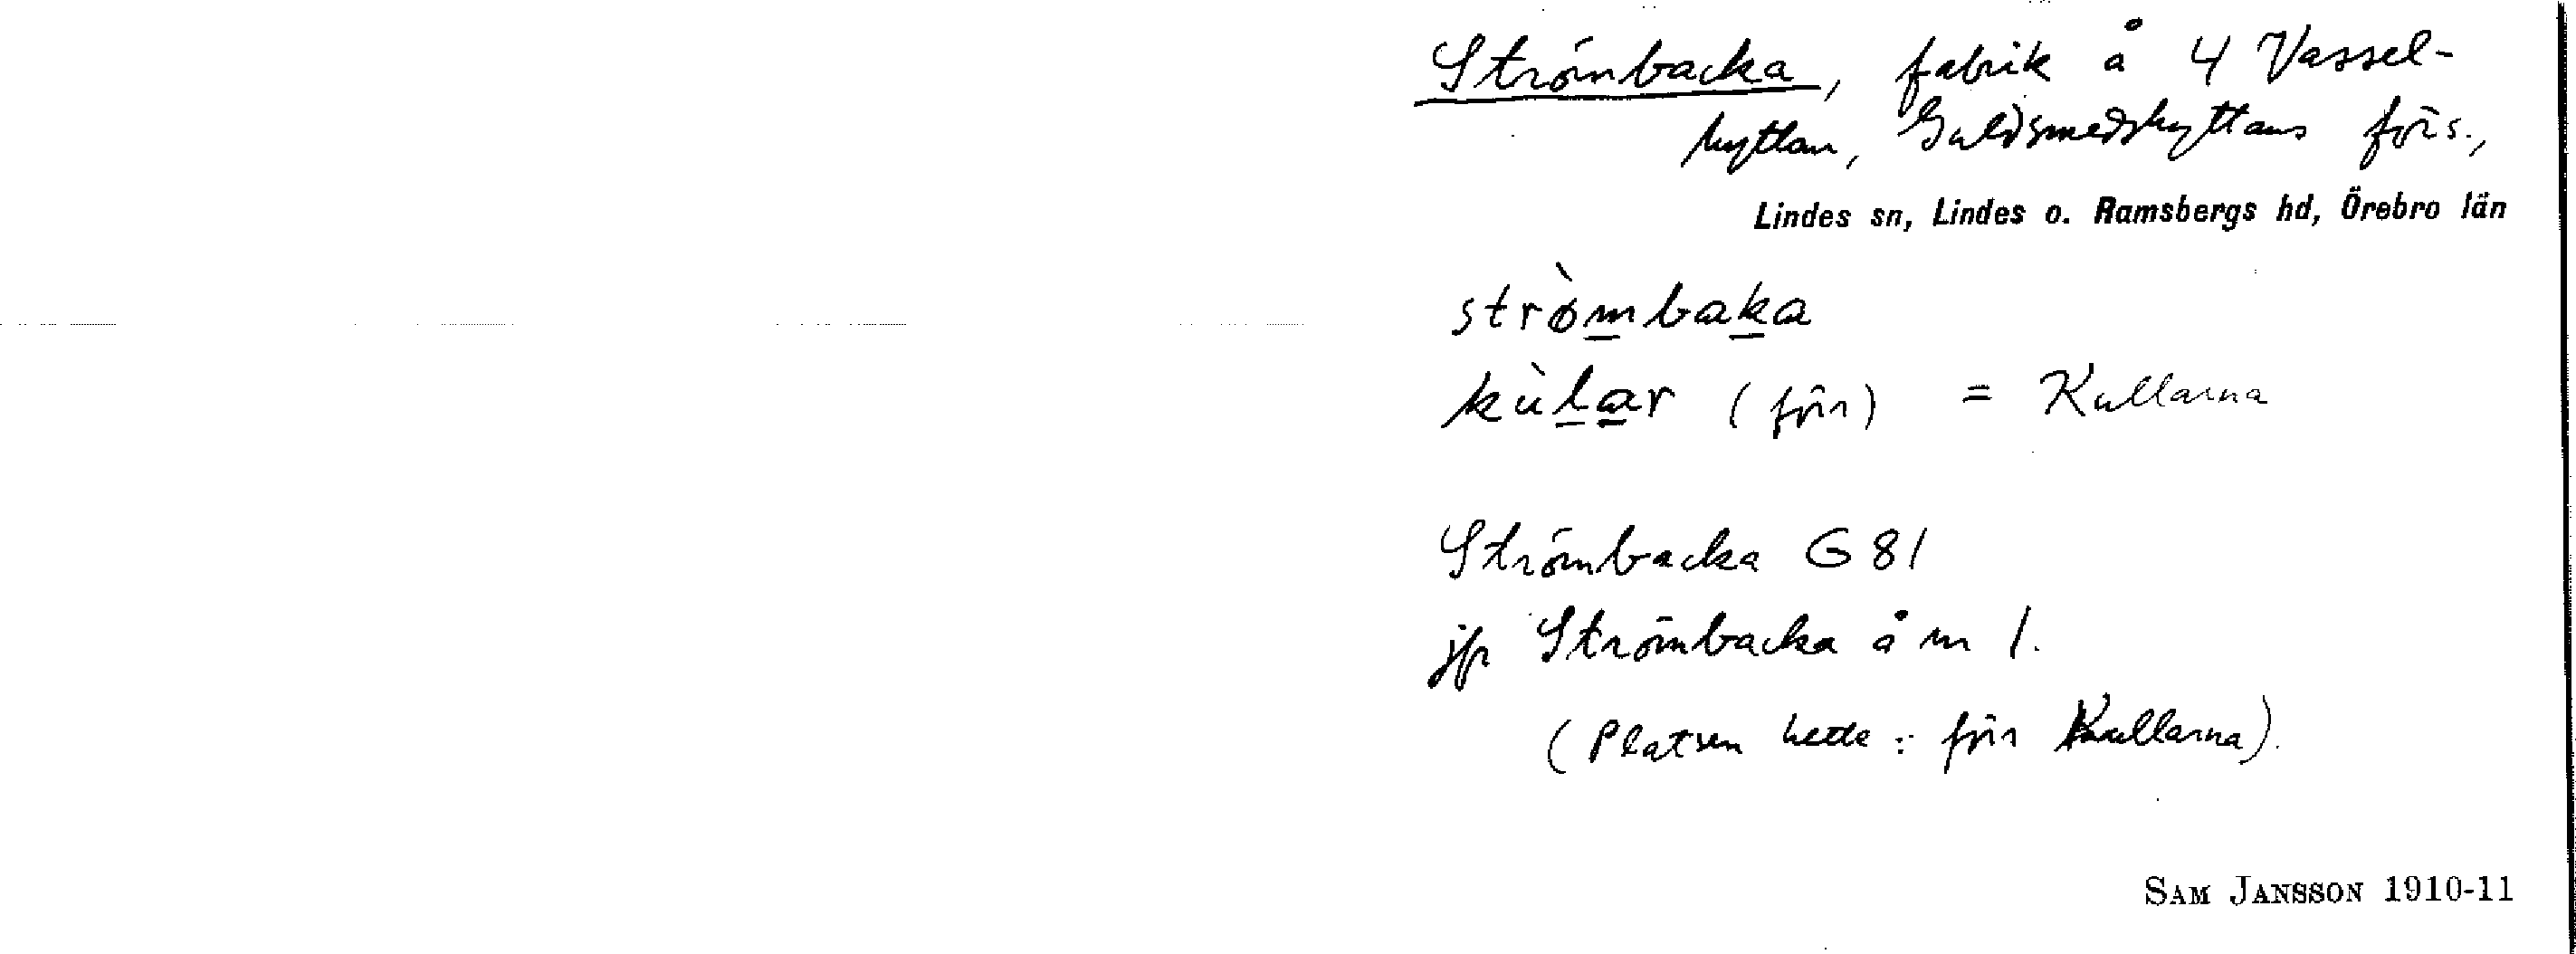 Strömbacka, fabrik å 4 Vassel-
hyttan, Guldsmedshyttans förs.,
Lindes sn, Lindes o. Ramsbergs hd, Örebro län
strø̀mbaka
kùlar (förr) = Kullarna
Strömbacka G 81
jfr Strömbacka å m 1.
(Platsen hette: förr Kullarna).
SAM JANSSON 1910-11